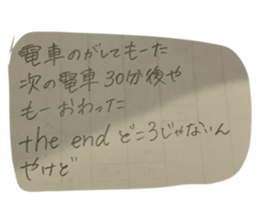 電車のがしてもーた
次の電車30分後や
もーおわった
the end どころじゃないん
やけど